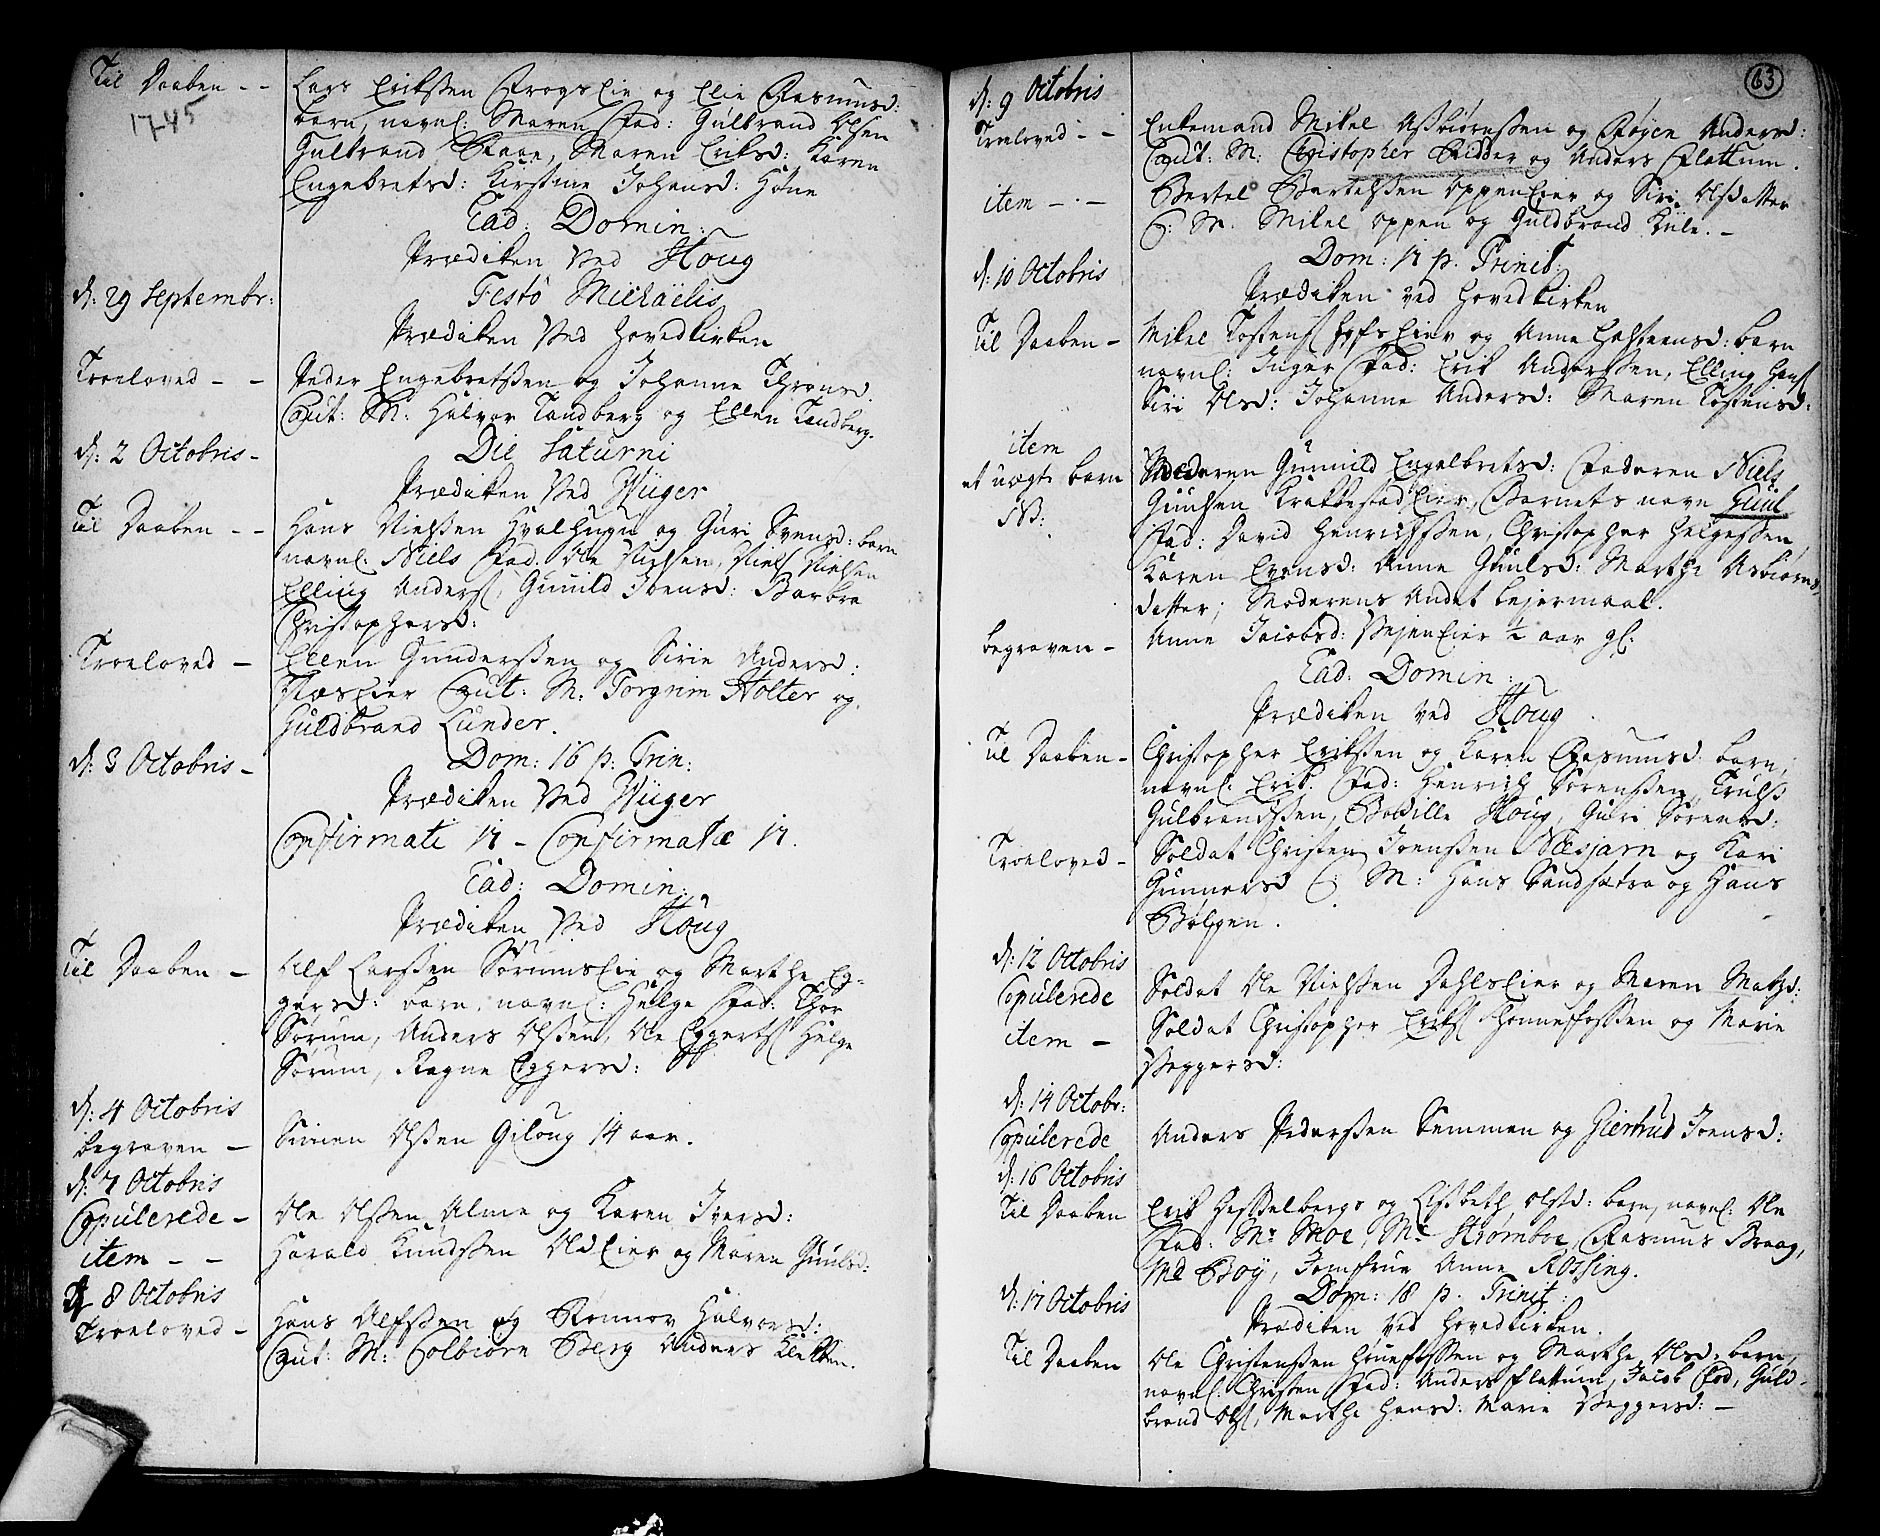 Til Daaben - -
1745
Lars Erikssen Frogs Eie og Elie Rasmusd:
barn, navnl. Maren Fad: Gulbrand Olsen
Gulbrand Skaane, Maren Eriksd: Karen
Engebretsd: Kirstine Johansd: Høne
Ead: Domin:
Prædiken ved Houg
d: 29 Septembr:
Festo Michaëlis
Prædiken ved Hovedkirken
Troeloved - -
Peder Engebretssen og Johanne Throнsd.
Caut: M: Halvor Tandberg og Ellen Tandberg.
d: 2 Octobris -
Die Saturni
Prædiken ved Wiiger
Til Daaben - -
Hans Nielssen Hvalhugn og Guri Svensd: barn
navnl: Niels Fad. Ole Nielsen, Niels Nielsen
Elling Anders, Gunild Joensd: Barbra
Christophersd:
Troeloved -
Ellen Gunderssen og Sirie Andersd:
Næs Eier Caut: M: Torgrim Holter og
Guldbrand Lunder.
d: 3 Octobris -
Dom: 16 p. Trin:
Prædiken ved Wiiger
Confirmati 17 - Confirmatæ 17.
Ead: Domin:
Prædiken ved Houg
Til Daaben -
Alf Larssen Sørums Eie og Marthe Eg-
gersd: barn, navnl: Helge Fad: Thor
Sørum, Anders Olssen, Ole Eggerts Helge
Sørum, Ragne Eggersd:
d: 4 Octobris
begraven -
Simen Olssen Giloug 14 aar.
d: 7 Octobris
Copulerede -
Ole Olssen Alme og Karen Iversd:
item - -
Harald Knudssen Old Eier og Maren Guulsd:
d 8 Octobris
Troeloved -
Hans Alfssen og Rønnov Halvorsd:
Caut: M: Colbiørn Berg Anders Klekken.
63
d: 9 Octobris
Troeloved - -
Enkemand Mikel Asbiørnssen og Røgen Andersd:
Caut: M: Christopher Ridder og Anders Flattum.
item - . -
Bertel Bertelssen Oppen Eier og Siri Olsdatter
C: M: Mikel Oppen og Guldbrand Kule. -
d: 10 Octobris
Dom: 17 p. Trinit:
Prædiken ved Hovedkirken
Til Daaben -
Mikel Tostens Hofs Eier og Anne Halsteensd: barn
navnl: Inger Fad: Erik Anderssen, Elling Hans
Siri Olsd: Johanne Andersd: Maren Tostensd:
item
et uægte barn
NB:
Moderen Gunnild Engelbretsd: Faderen Niels
Guulsen Krakkestad Eier, Barnets navn Guul
Fad: David Henrichssen, Christopher Helgessen,
Karen Evensd: Anne Guulsd: Marthe Asbiørns
datter; Moderens Andet lejermaal.
begraven -
Anne Jacobsd: Vejen Eier 1/2 aar gl:
Ead: Domin:
Prædiken ved Houg
Til Daaben -
Christopher Erikssen og Karen Rasmusd: barn,
navnl: Erik. Fad: Henrich Sørenssen, Truls
Gulbrandssen, Bodille Houg, Guri Sørensd:
Troeloved -
Soldat Christen Joenssen Næsjarn og Kari
Gunnersd C: M: Hans Sandsætra og Hans
Bølgen.
d: 12 Octobris
Copulerede
Soldat Ole Nielssen Dahls Eier og Maren Matsd:
item -
Soldat Christopher Eriks Hønneffossen og Marie
Veggersd:
d: 14 Octobr:
Copulerede
Anders Pederssen Semmen og Giertrud Joensd:
d: 16 Octobris
Til Daaben
Erik Hesselbergs og Lisbeth Olsd: barn, navnl: Ole
Fad: Mr Moe, Mr Strømboe, Rasmus Braag,
Md Boÿ, Jomfrue Anne Rossing.
d: 17 Octobris
Dom: 18 p. Trinit:
Prædiken ved Hovedkirken.
Til Daaben
Ole Christenssen Høneffossen og Marthe Olsd: barn,
navnl: Christen Fad: Anders Flattum, Jacob Fod, Guld-
brand Ols, Marthe Hansd: Marie Veggersd: -